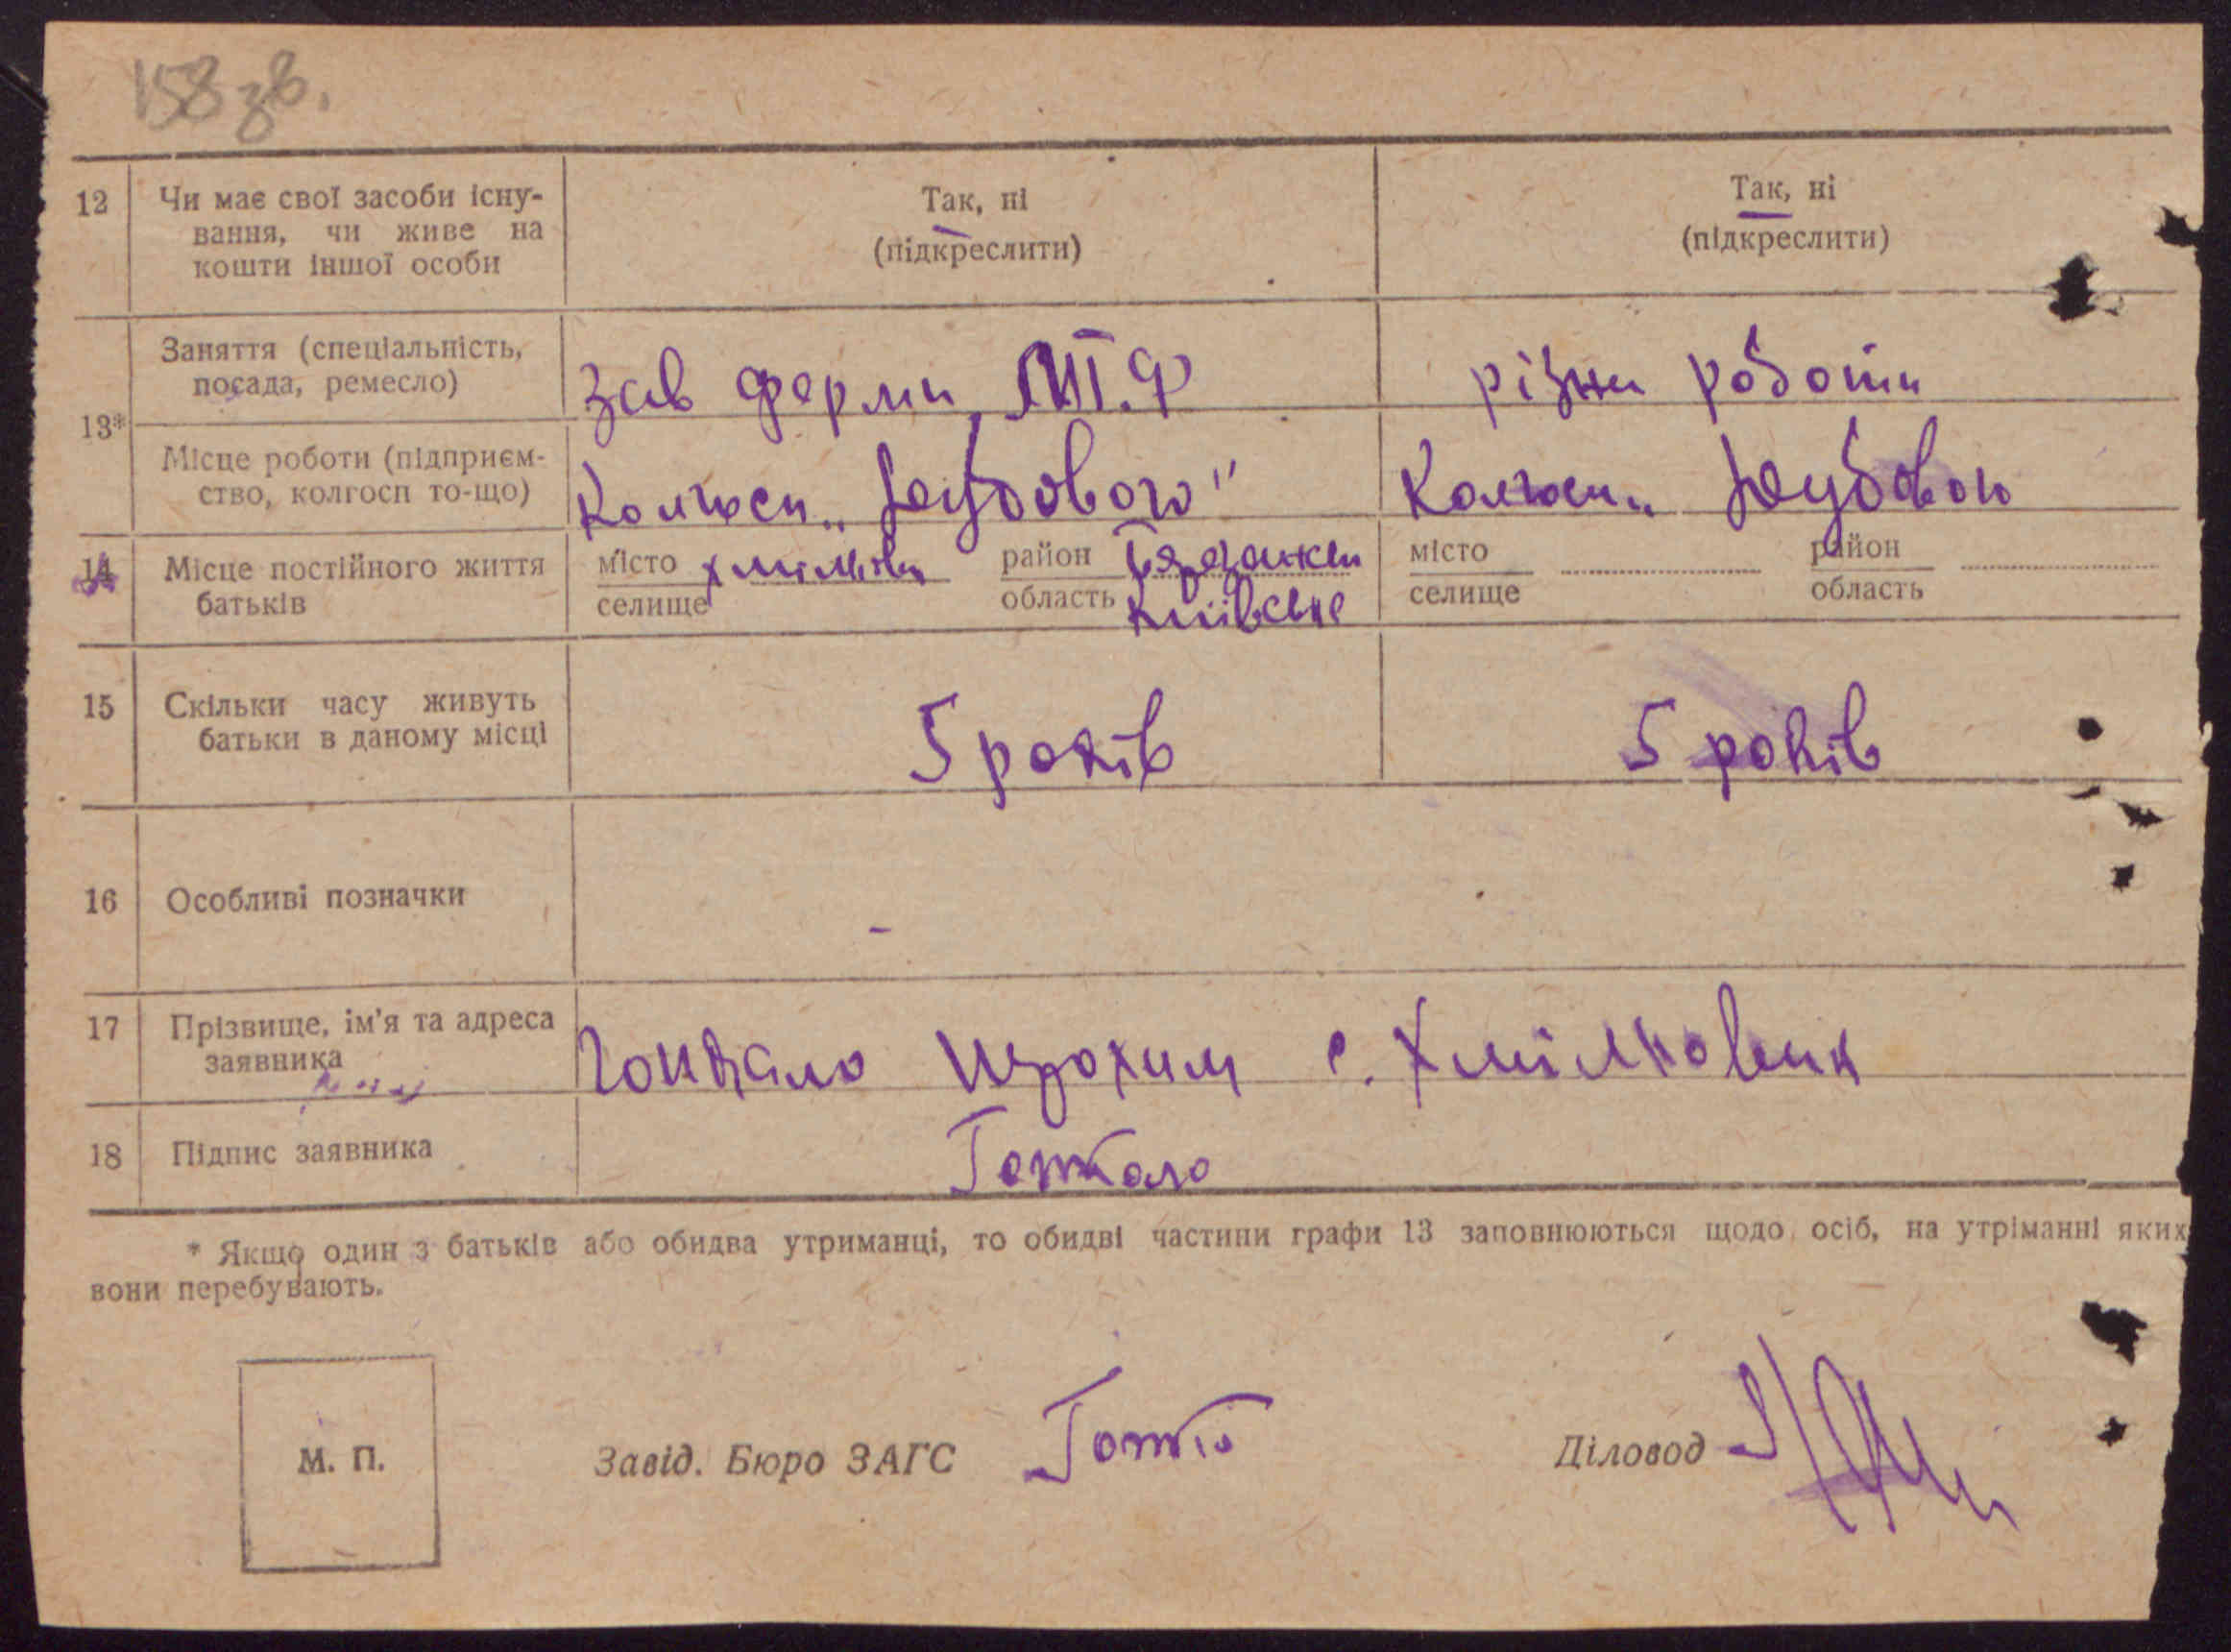 158 зв.
12 Чи має свої засоби існу- Так, ні Так, ні
вання, чи живе на (підкреслити) (підкреслити)
кошти іншої особи
13* Заняття (спеціальність, посада, ремесло) зав ферми М.Т.Ф різни роботи
Місце роботи (підприєм-
ство, колгосп то-що) Колгосп Колгосп
14 Місце постійного життя місто район місто район
батьків селище область Київське селище область
15 Скільки часу живуть
батьки в даному місці 5 років 5 років
16 Особливі позначки -
17 Прізвище, ім'я та адреса
заявника с.
18 Підпис заявника
* Якщо один з батьків або обидва утриманці, то обидві частини графи 13 заповнюються щодо осіб, на утріманні яких
вони перебувають.
М. П. Завід. Бюро ЗАГС Діловод